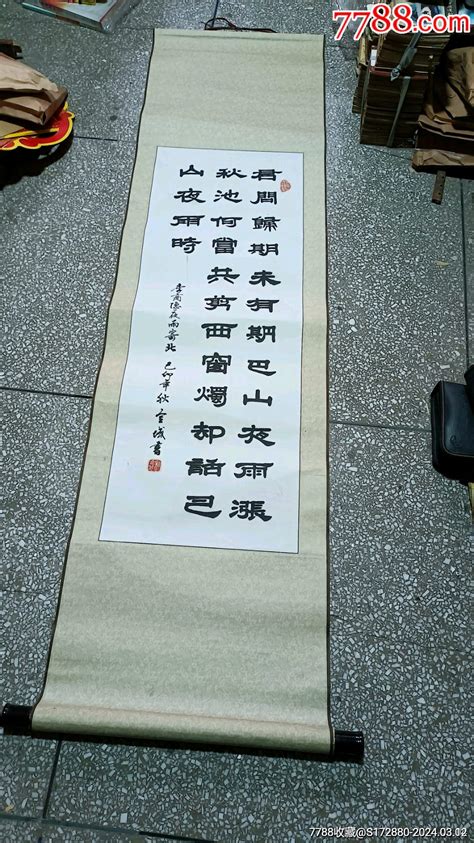 7788.com
君問歸期未有期巴山夜雨漲
秋池何當共剪西窗燭却話巴
山夜雨時
李商隱夜雨寄北 己卯年秋 書
7788收藏@S172880-2024.03.12